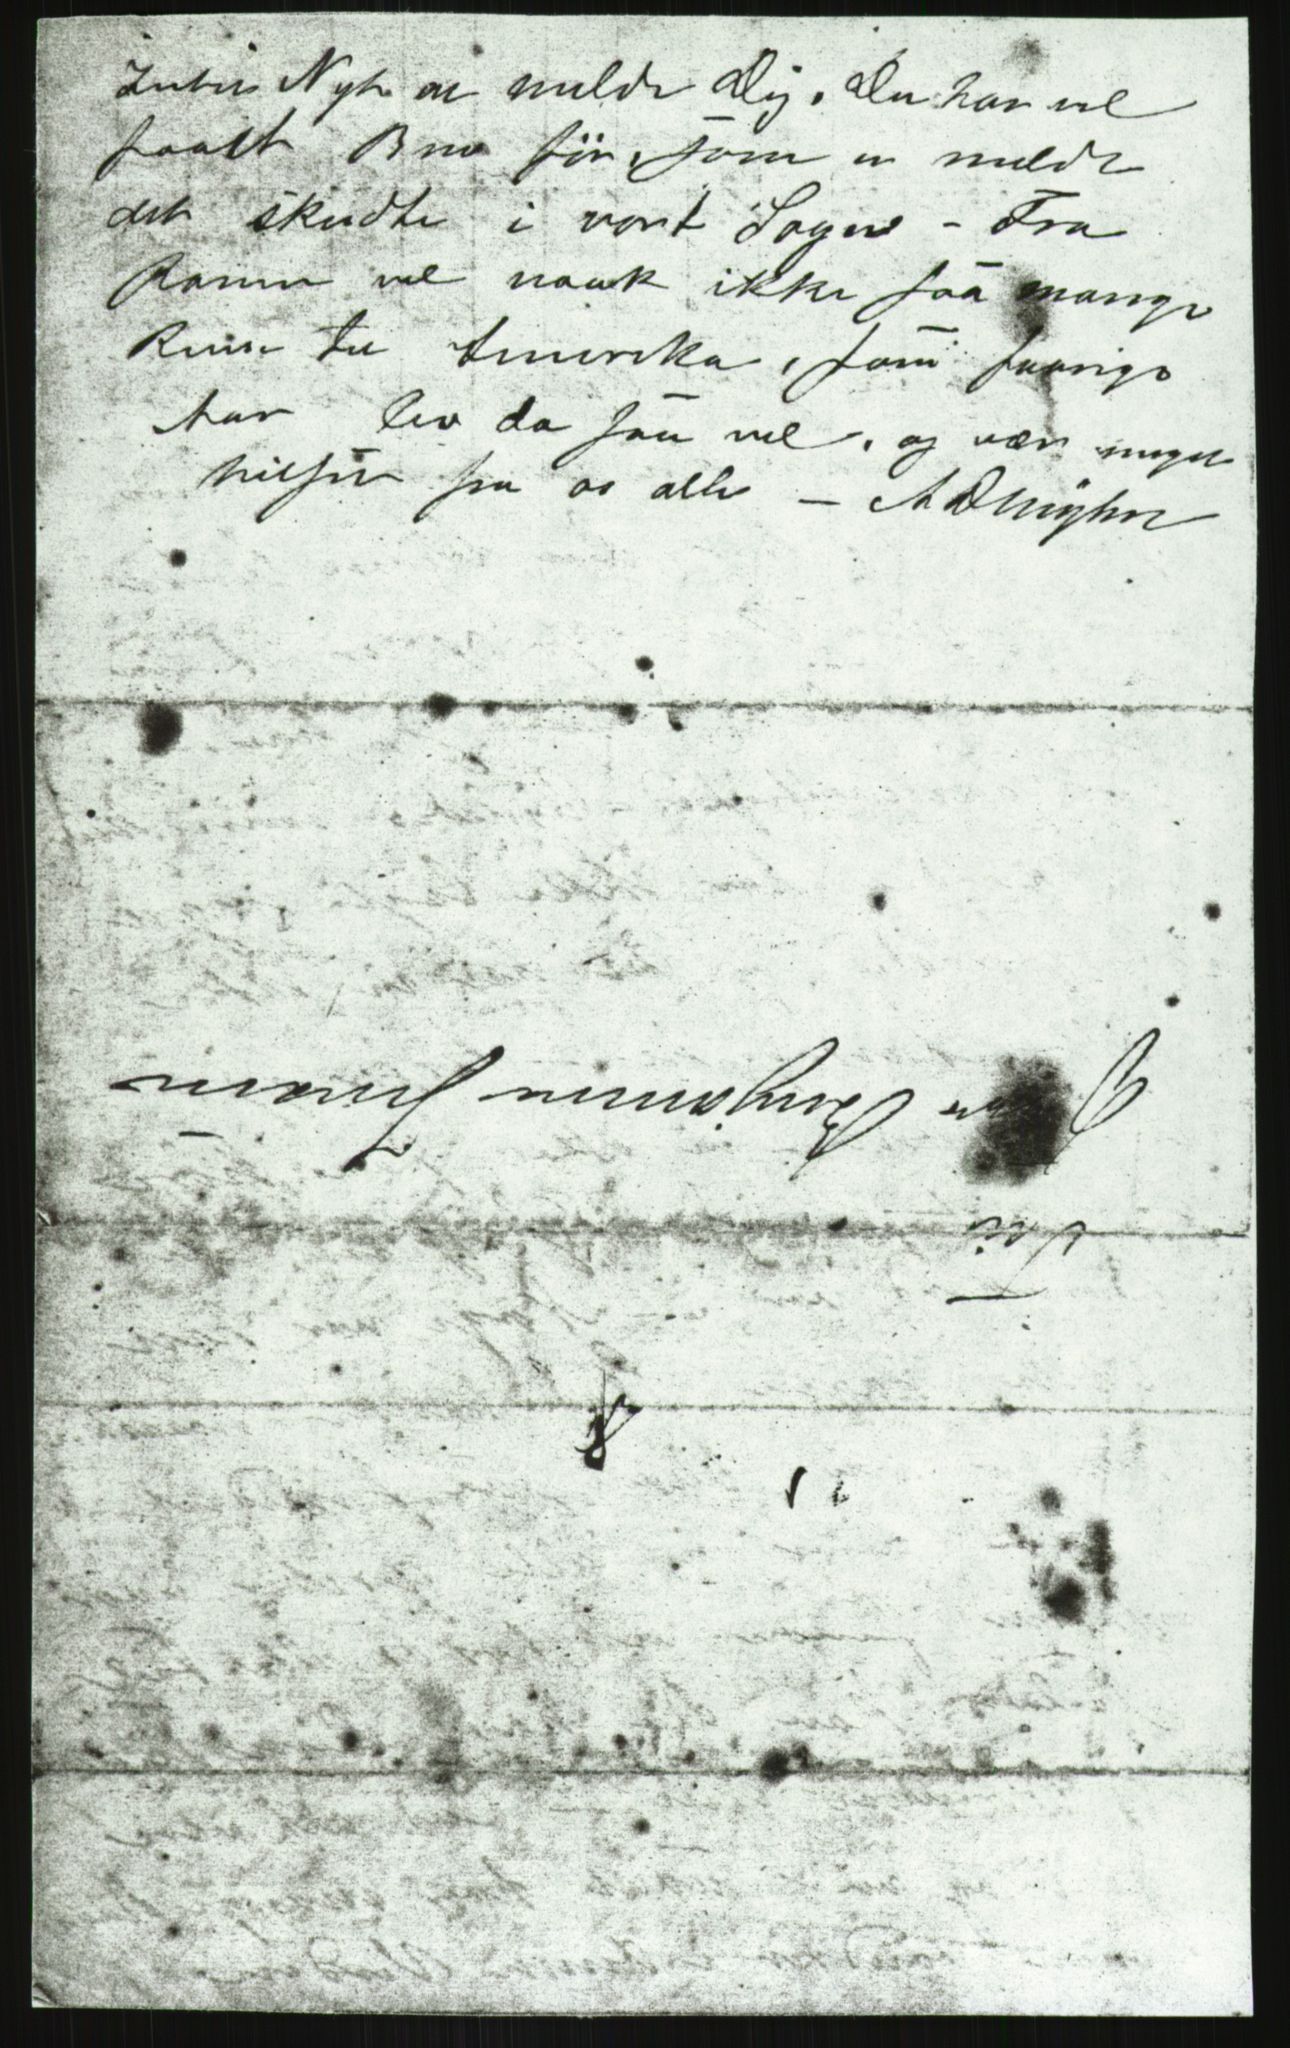 Intet Nyt at melde Dig. Du har vel
faaet Brev før, som er meldt
det skedte i vort Sogn - Fra
Ramn vel naak ikke saa mange
Reise til Amerika, som forrige
Aar Lev da saa vel, og vær meget
hilset fra os alle -
Benjamin Iversen
Til